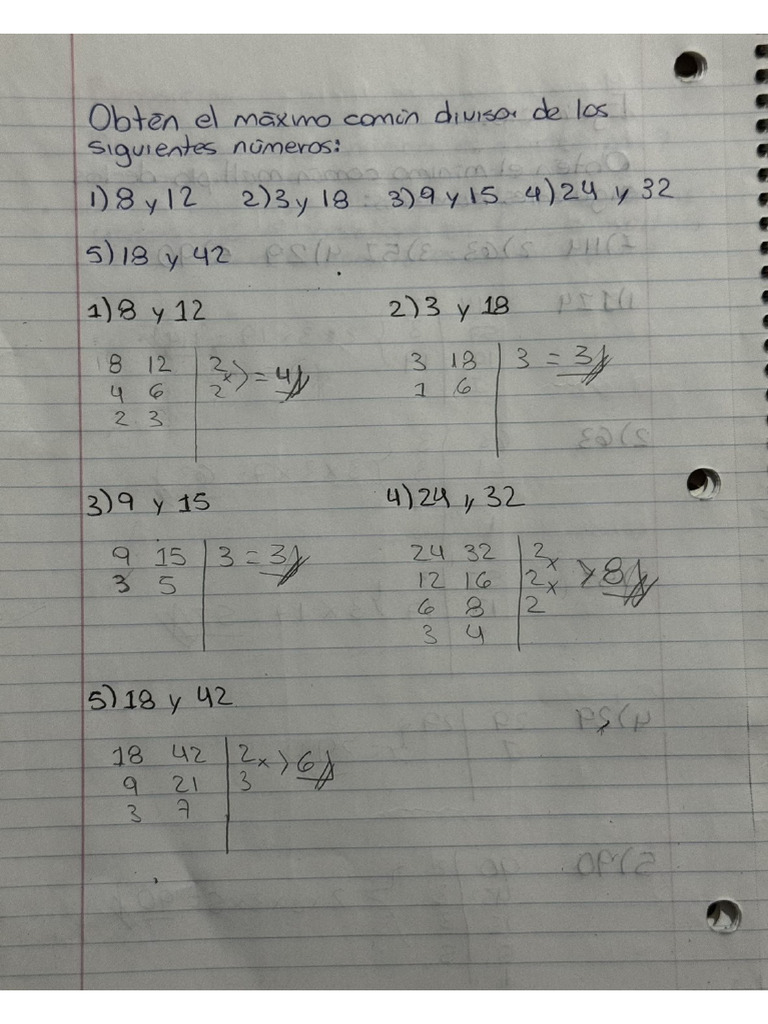 Obtén el máximo común divisor de los
siguientes números:
1) 8 y 12 2) 3 y 18 3) 9 y 15 4) 24 y 32
5) 18 y 42
1) 8 y 12
8 12 | 2 x
4 6 | 2 > = 4
2 3 |
2) 3 y 18
3 18 | 3 = 3
1 6 |
3) 9 y 15
9 15 | 3 = 3
3 5 |
4) 24 y 32
24 32 | 2 x
12 16 | 2 x > 8
6 8 | 2
3 4 |
5) 18 y 42
18 42 | 2 x > 6
9 21 | 3
3 7 |